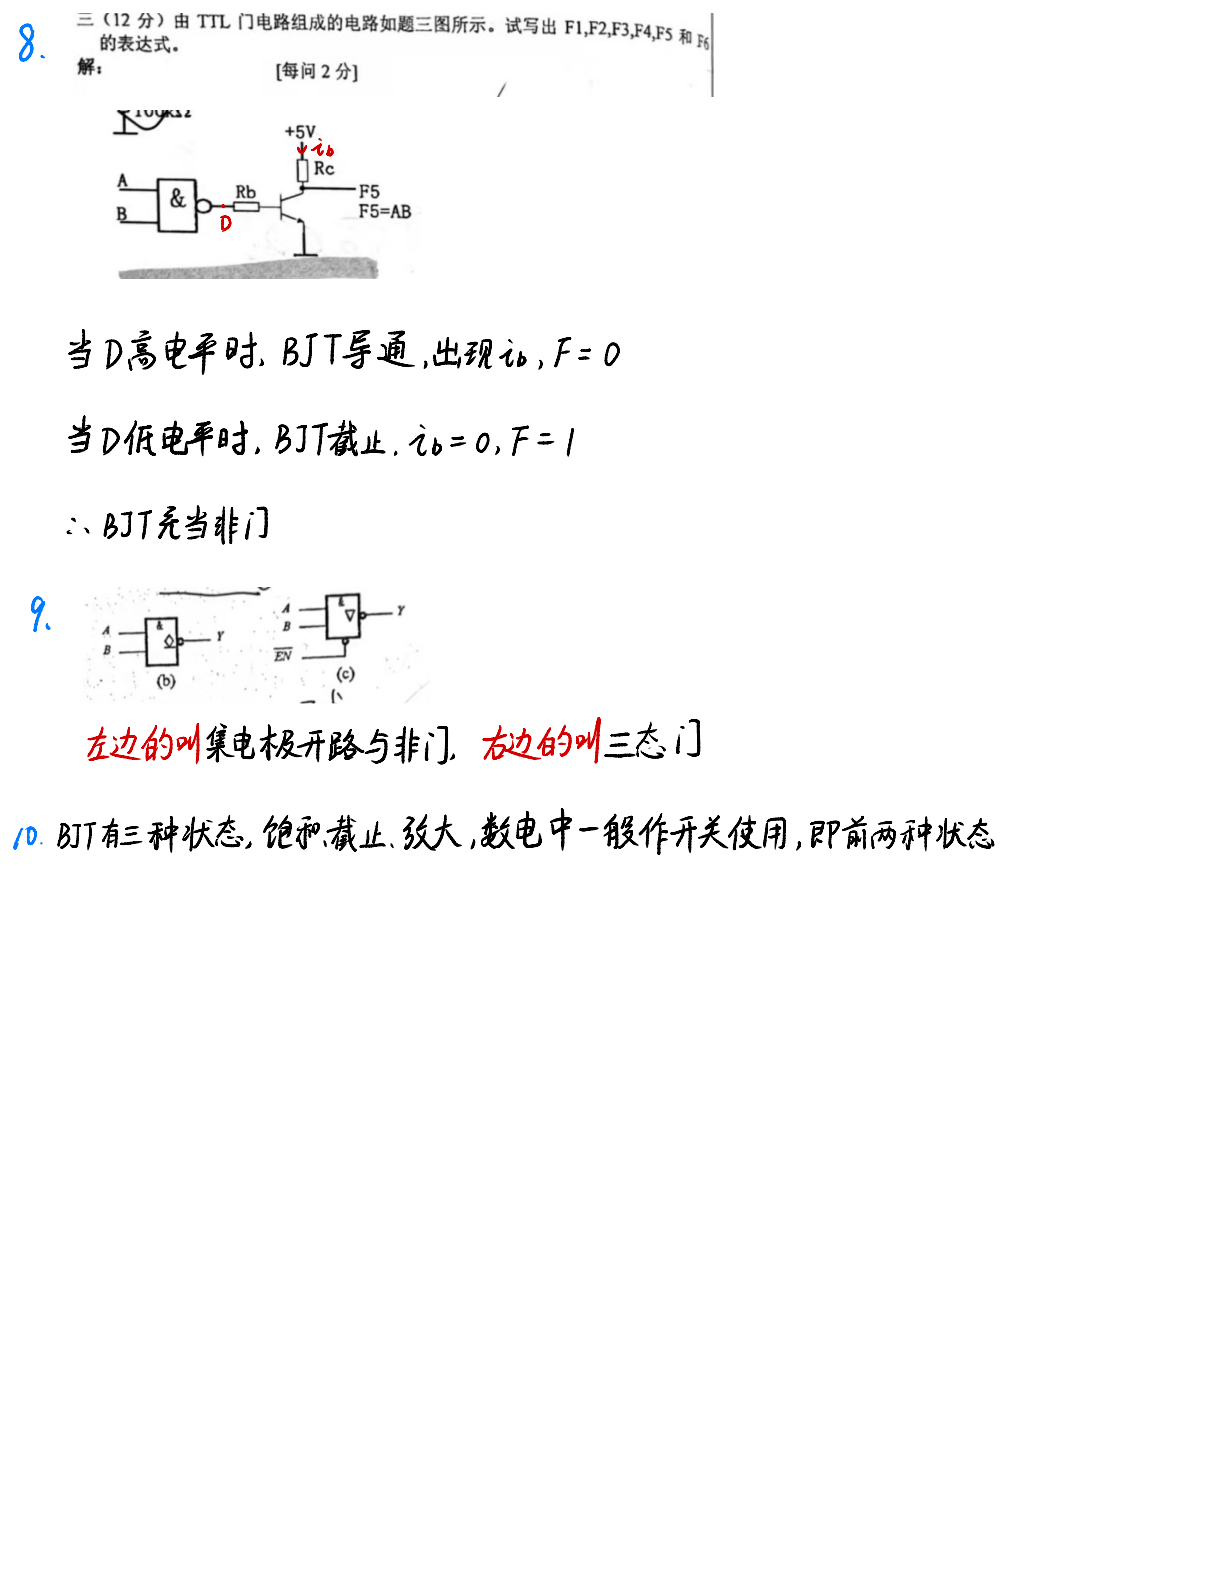 8.
三（12 分）由 TTL 门电路组成的电路如题三图所示。试写出 F1,F2,F3,F4,F5 和 F6
的表达式。
解：
[每问 2 分]
100kΩ
+5V
ib
Rc
A
&
Rb
F5
B
D
F5=AB
当D高电平时, BJT导通,出现ib, F=0
当D低电平时, BJT截止. ib=0, F=1
∴ BJT充当非门
9.
A
B
&
Y
(b)
A
B
EN
&
Y
(c)
左边的叫集电极开路与非门, 右边的叫三态门
10. BJT有三种状态, 饱和、截止、放大, 数电中一般作开关使用, 即前两种状态